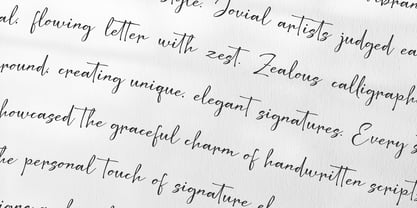 style. Jovial artists judged
al, flowing letter with zest. Zealous
round, creating unique, elegant signatures. Every
howcased the graceful charm of handwritten script
he personal touch of signature